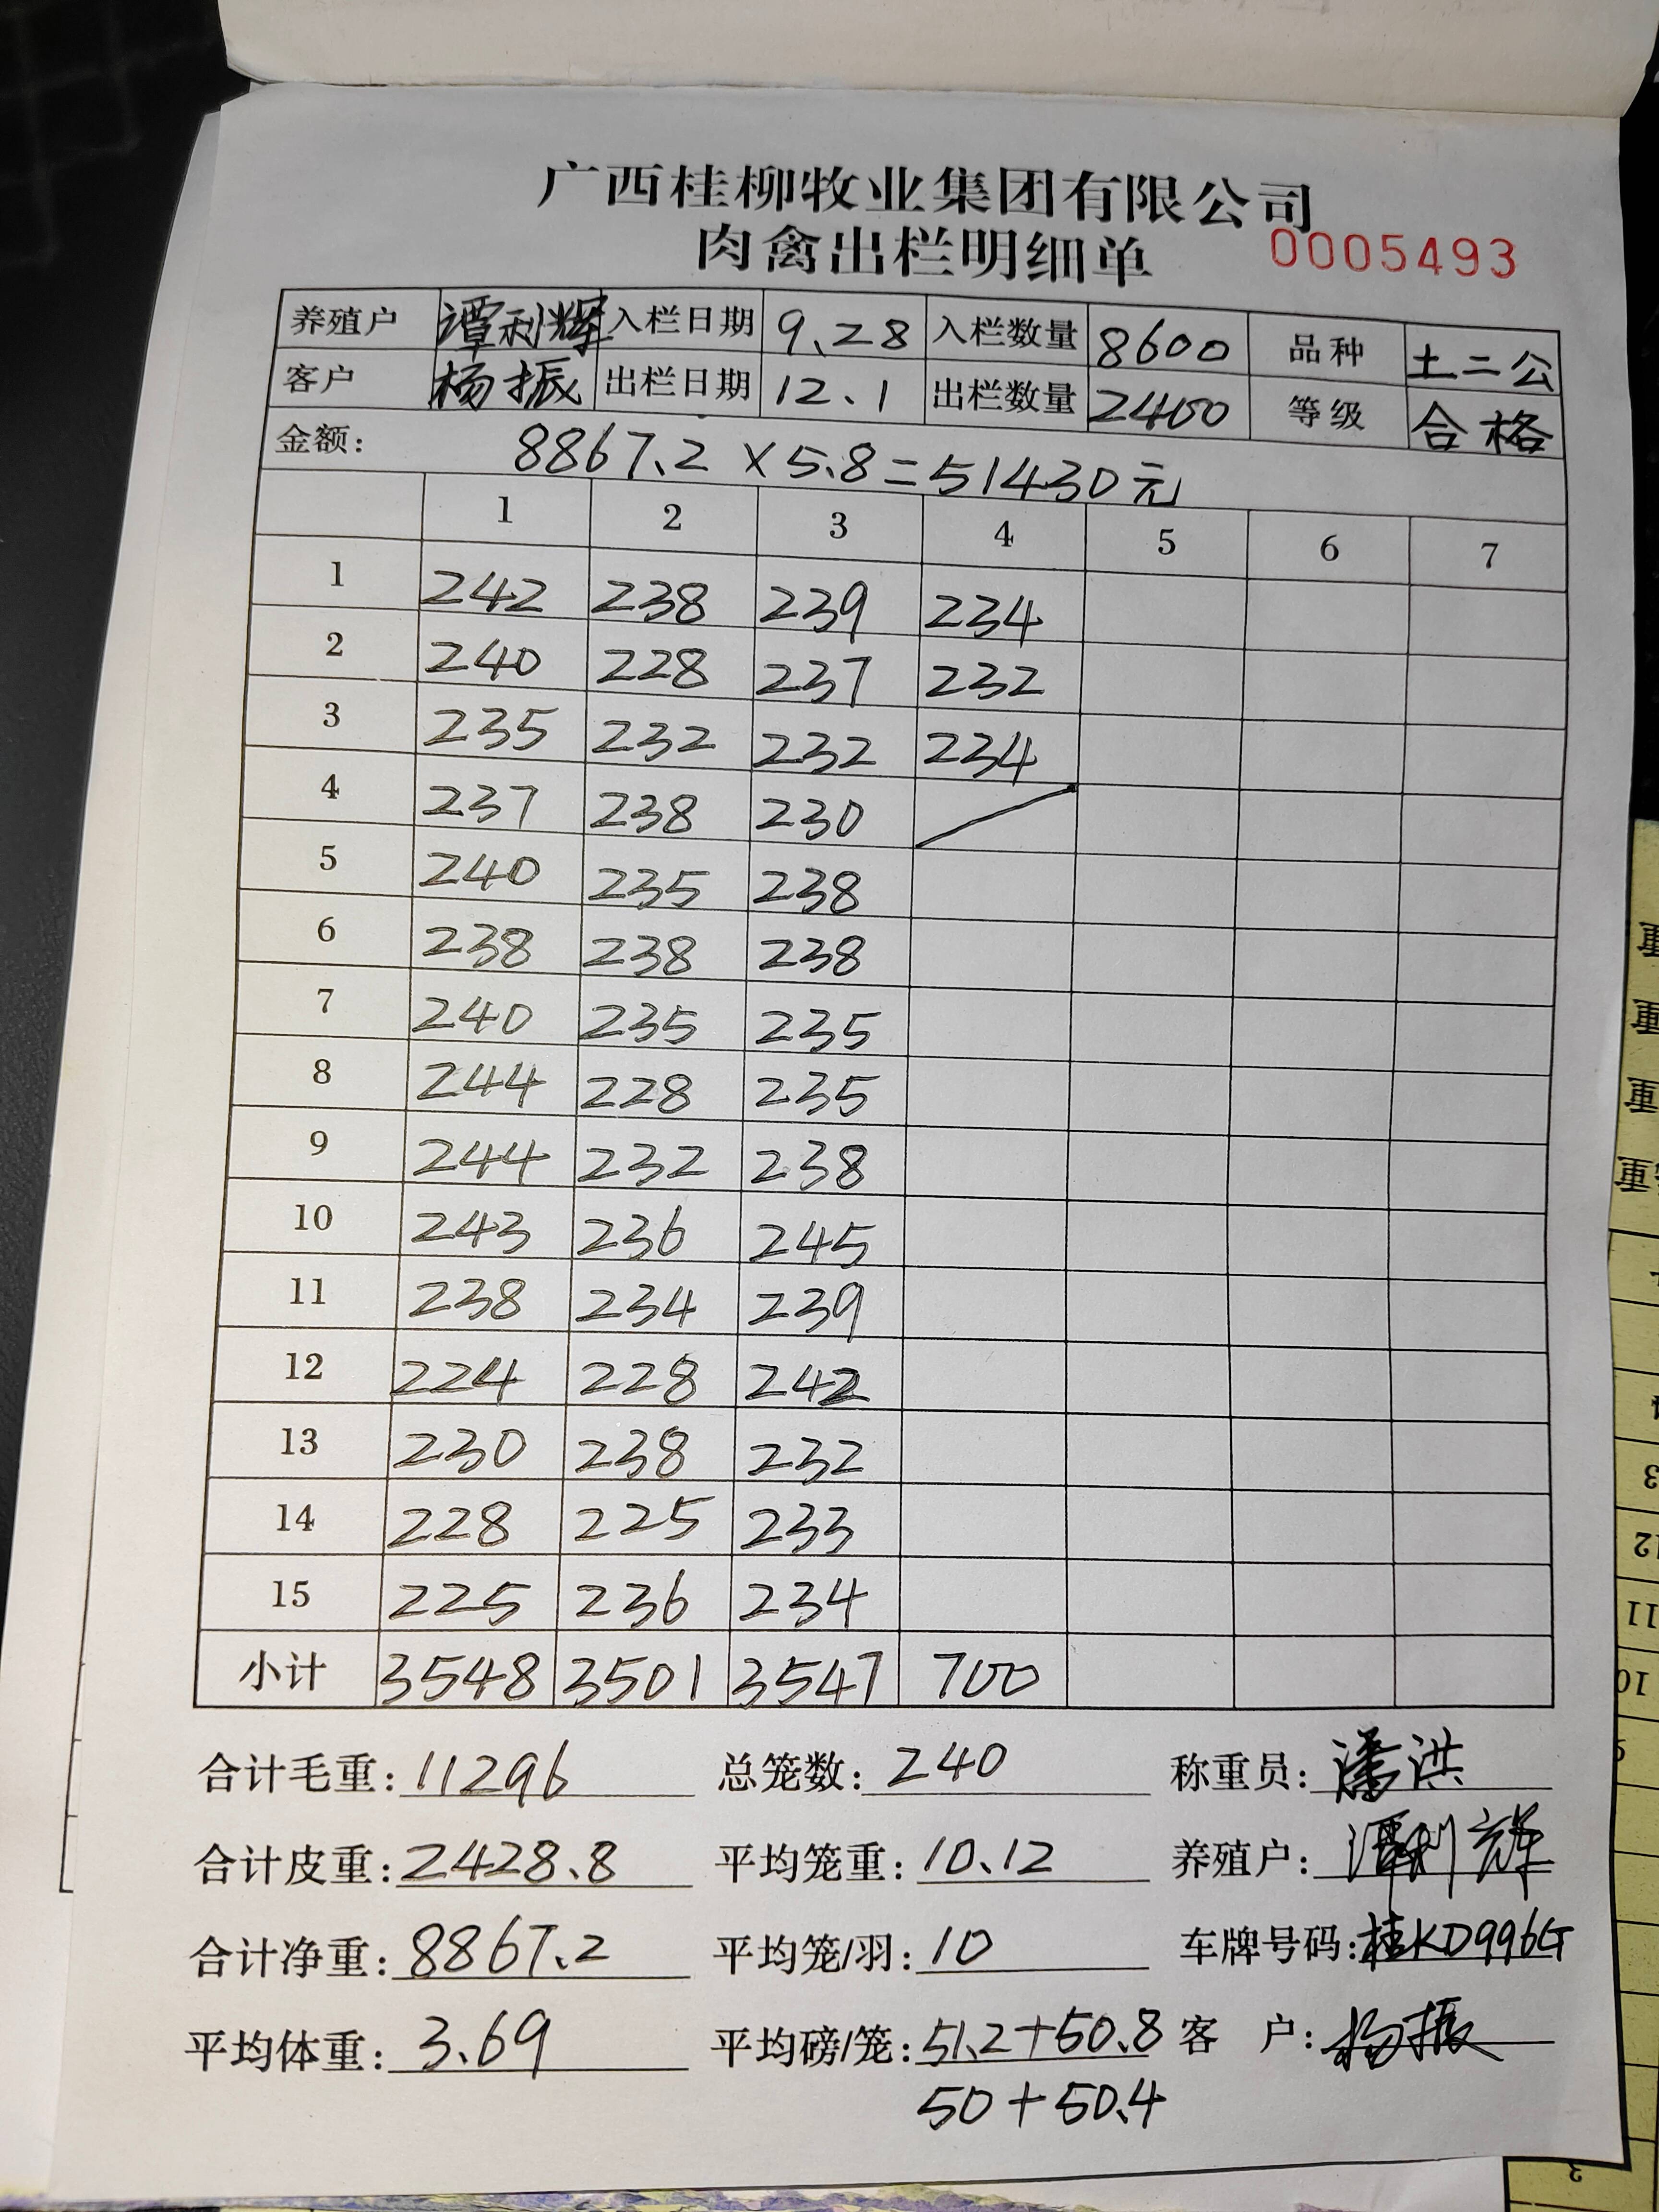 广西桂柳牧业集团有限公司
肉禽出栏明细单 0005493
养殖户 谭利辉 入栏日期 9.28 入栏数量 8600 品种 土二公
客户 杨振 出栏日期 12.1 出栏数量 2400 等级 合格
金额: 8867.2×5.8=51430元
1 2 3 4 5 6 7
1 242 238 239 234
2 240 228 237 232
3 235 232 232 234
4 237 238 230
5 240 235 238
6 238 238 238
7 240 235 235
8 244 228 235
9 244 232 238
10 243 236 245
11 238 234 239
12 224 228 242
13 230 238 232
14 228 225 233
15 225 236 234
小计 3548 3501 3547 700
合计毛重: 11296 总笼数: 240 称重员: 潘洪
合计皮重: 2428.8 平均笼重: 10.12 养殖户: 谭利辉
合计净重: 8867.2 平均笼/羽: 10 车牌号码: 桂KD996G
平均体重: 3.69 平均磅/笼: 51.2+50.8 客 户: 杨振
50+50.4